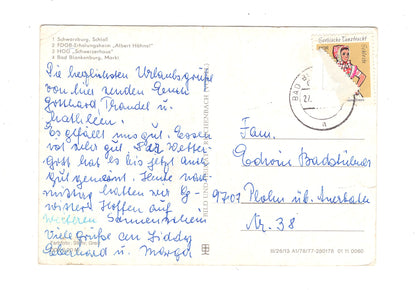 1 Schwarzburg, Schloß
2 FDGB-Erholungsheim „Albert Hähnel"
3 HOG „Schweizerhaus"
4 Bad Blankenburg, Markt
Die herzlichsten Urlaubsgrüße
von hier senden
gotthard, u.
Kathleen.
Es gefällt uns gut. Essen
ist sehr gut. Der Wetter-
gott hat es bis jetzt auch
gut gemeint. Heute nach-
mittag hatten wir Ge-
witter. Hoffen auf
weiteren Sonnenschein
Viele Grüße an
Eberhard u.
BILD UND REICHENBACH
Sorbische Tanztracht
BAD
27.
a
Fam.
Edwin Badstübner
9707 Plohn üb. Auerbach
Nr. 38
III/26/13 01 11 0060